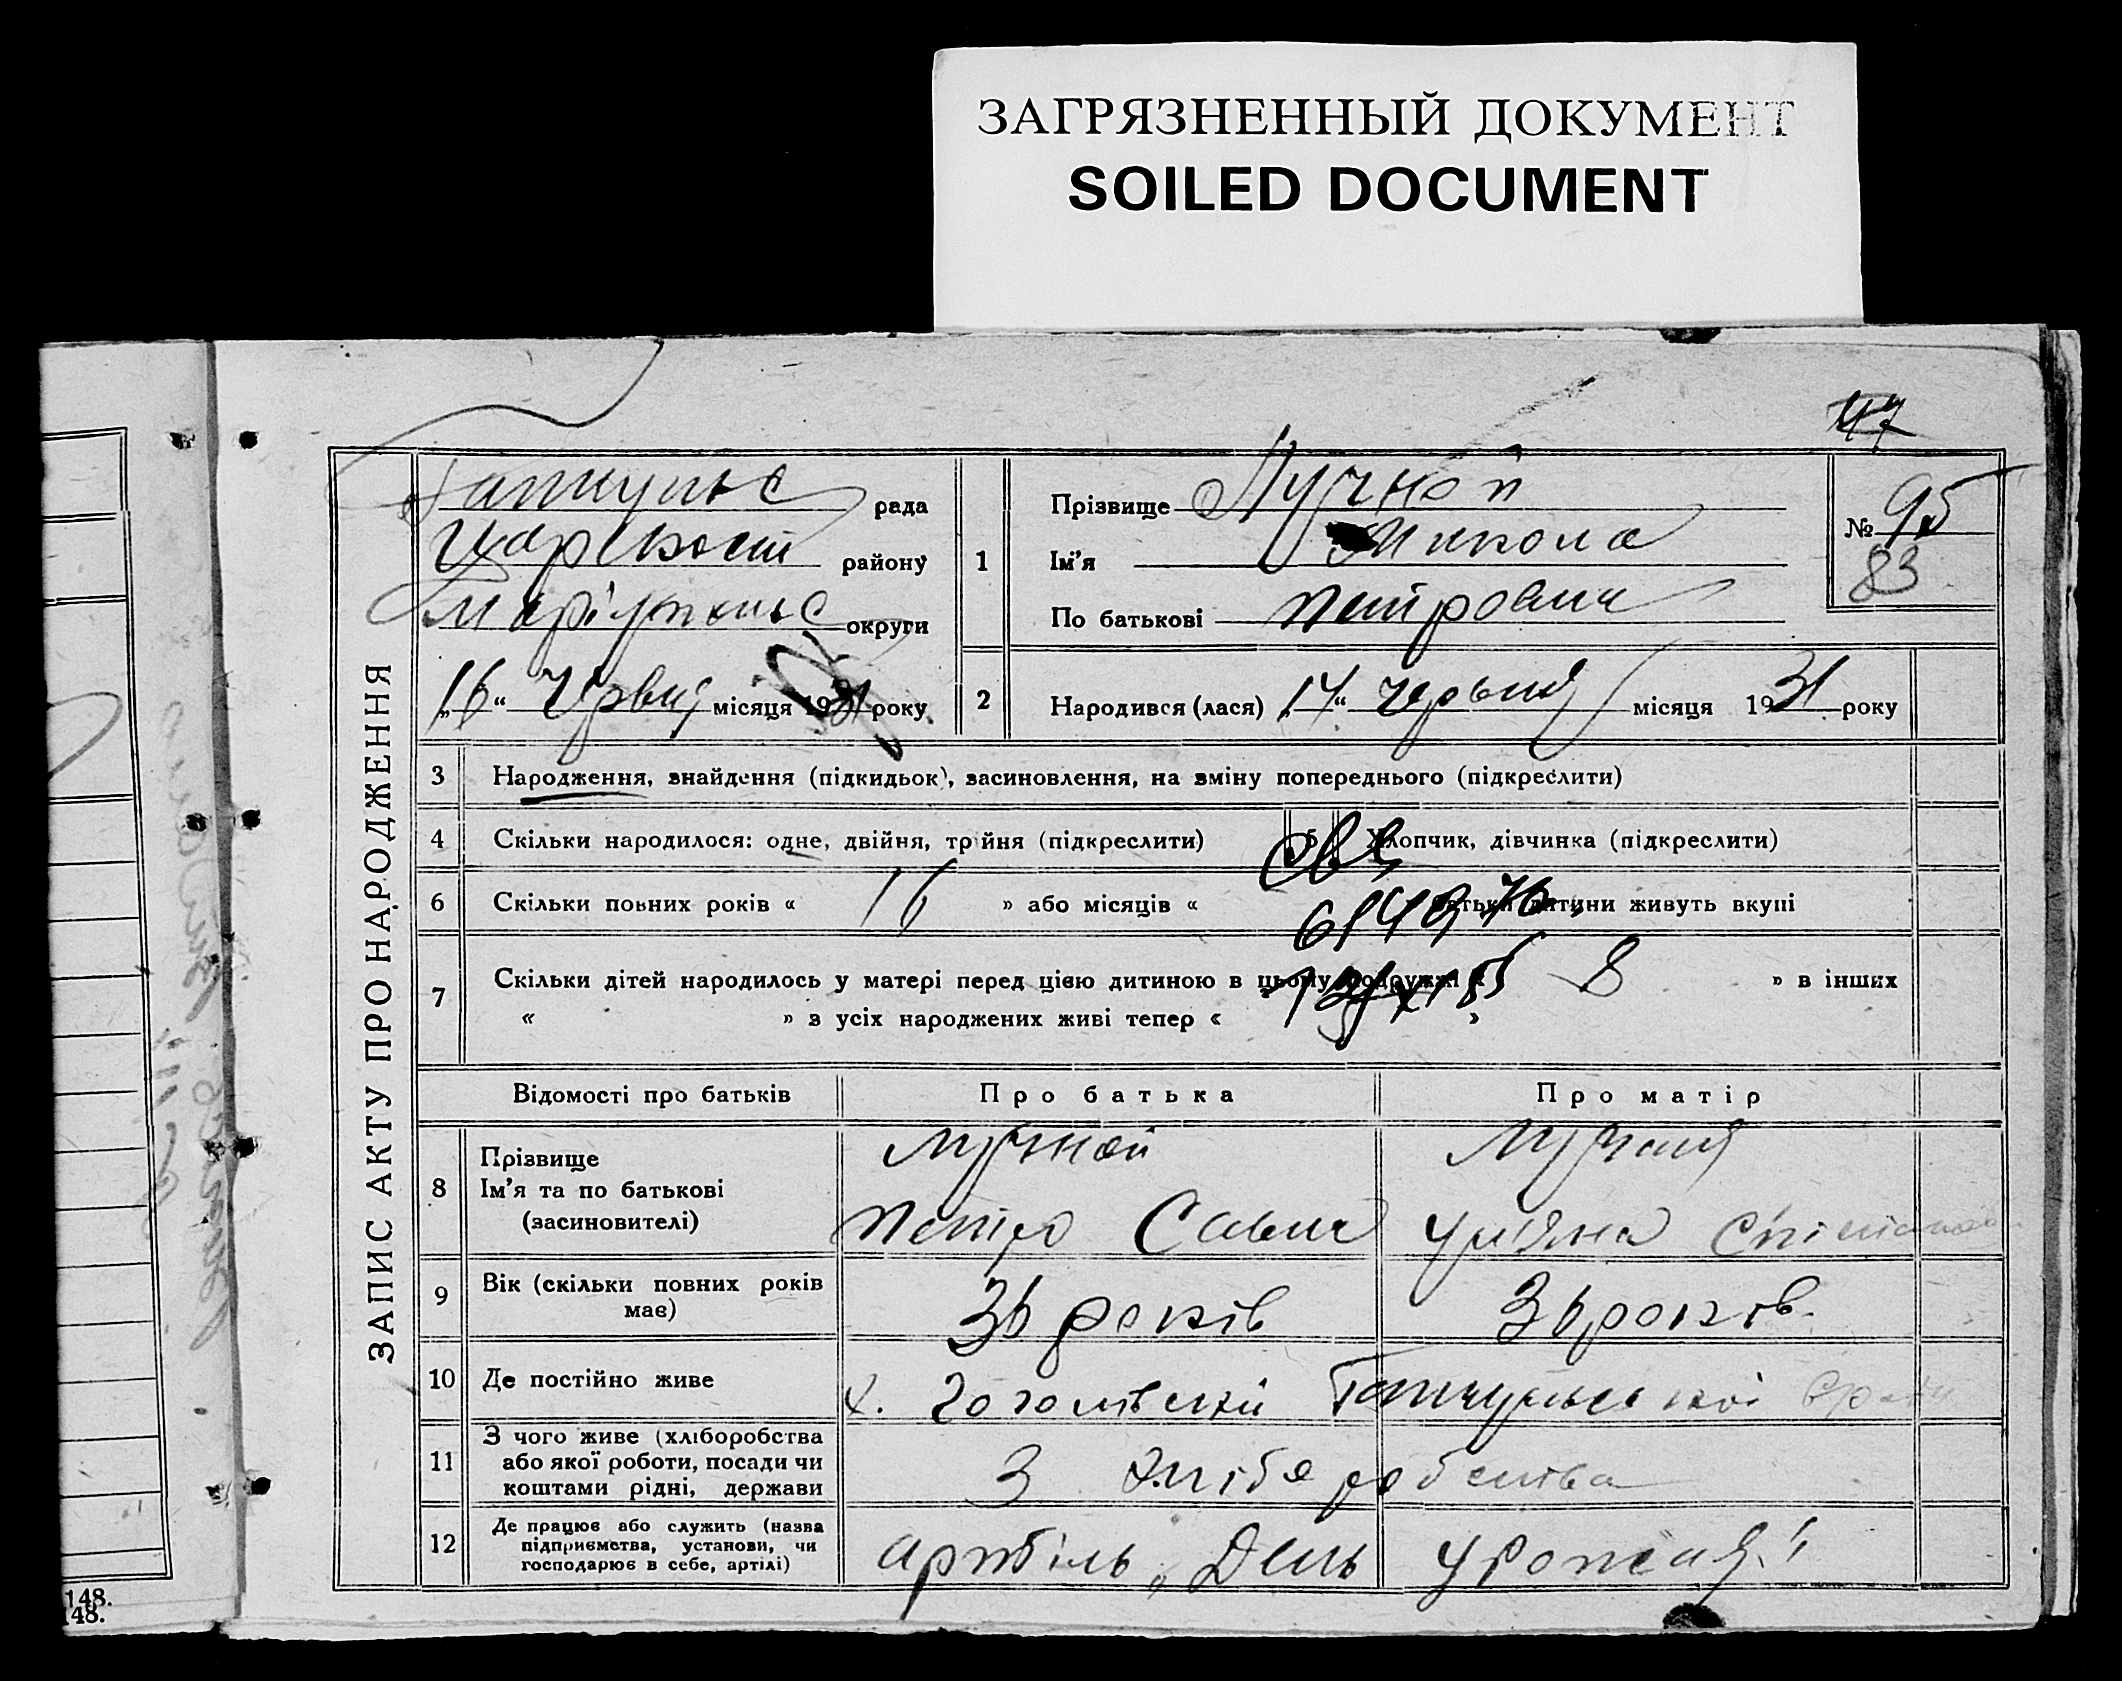 ЗАГРЯЗНЕННЫЙ ДОКУМЕНТ
SOILED DOCUMENT
47
ЗАПИС АКТУ ПРО НАРОДЖЕННЯ
рада
району
округи
„16“ Червня місяця 1931 року
1
Прізвище Лучной
Ім'я Микола
По батькові Петрович
№ 95
83
2 Народився (лася) „14“ червня місяця 1931 року
3 Народження, знайдення (підкидьок), засиновлення, на зміну попереднього (підкреслити)
4 Скільки народилося: одне, двійня, тройня (підкреслити) 5 Хлопчик, дівчинка (підкреслити)
6 Скільки повних років « 16 » або місяців « батьки дитини живуть вкупі
7 Скільки дітей народилось у матері перед цією дитиною в цьому подружжі « 8 » в інших
« » з усіх народжених живі тепер « »
Відомості про батьків Про батька Про матір
8 Прізвище
Ім'я та по батькові
(засиновителі)
Лучной
Петро Савич
Уляна
9 Вік (скільки повних років
має)
36 років 36 років.
10 Де постійно живе
х.
11 З чого живе (хліборобства
або якої роботи, посади чи
коштами рідні, держави
З хліборобства
12 Де працює або служить (назва
підприємства, установи, чи
господарює в себе, артілі)
артіль „День Урожая"
148.
148.